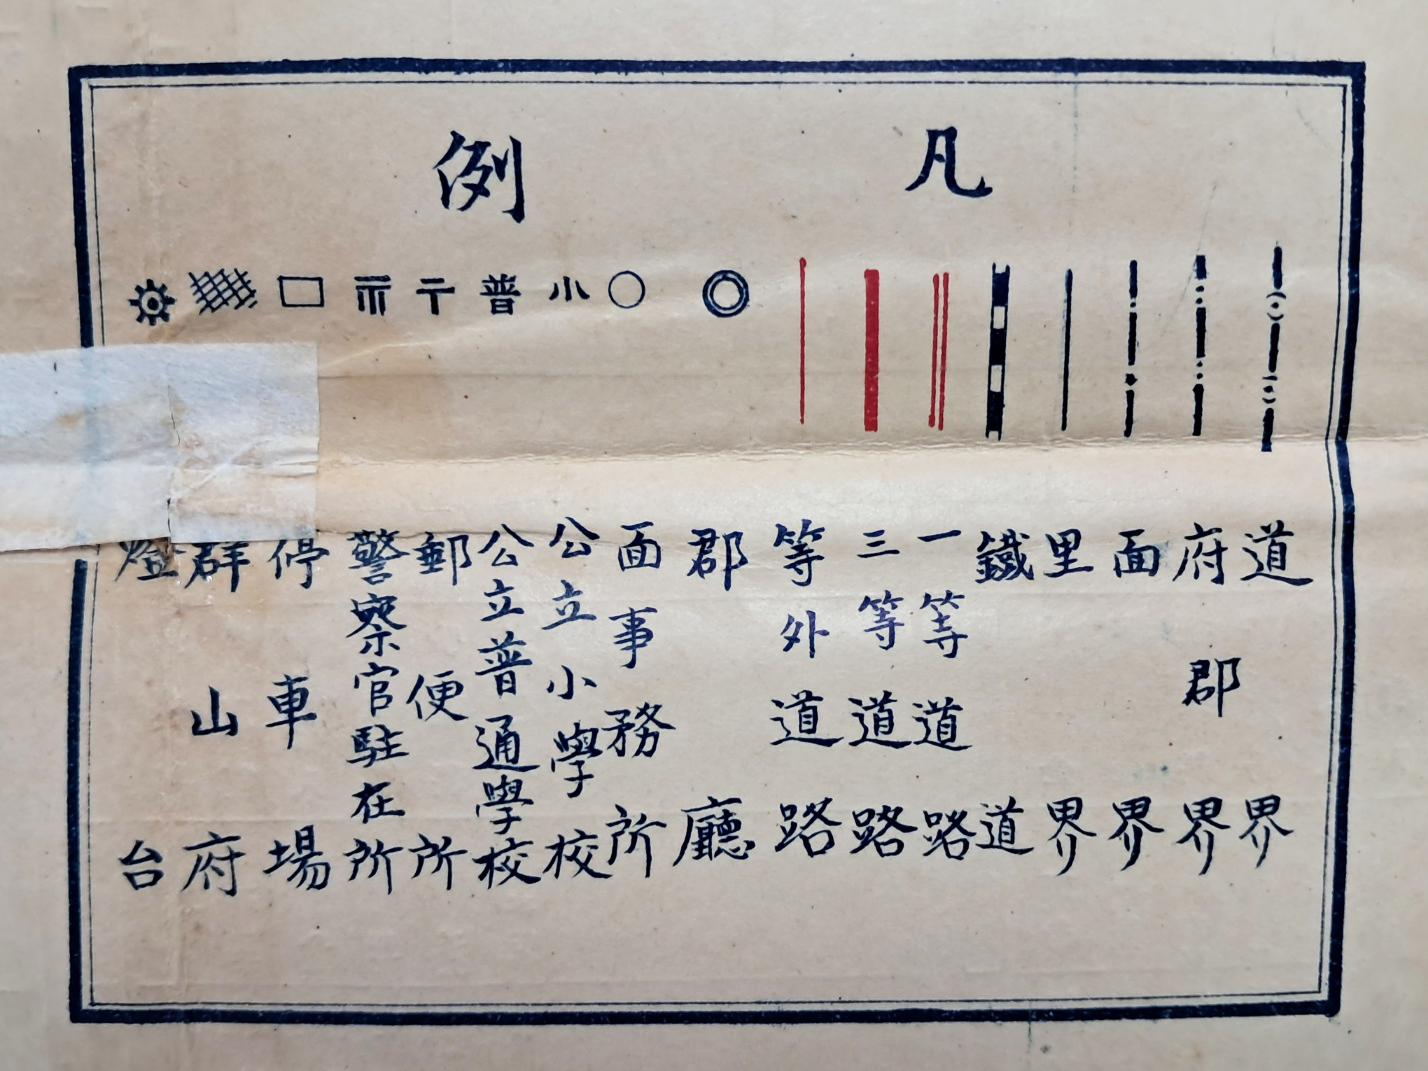 凡例
道界
府郡界
面界
里界
鐵道
一等道路
三等道路
等外道路
郡廳
面事務所
小 公立小學校
普 公立普通學校
〒 郵便所
警察官駐在所
停車場
群山府
燈台